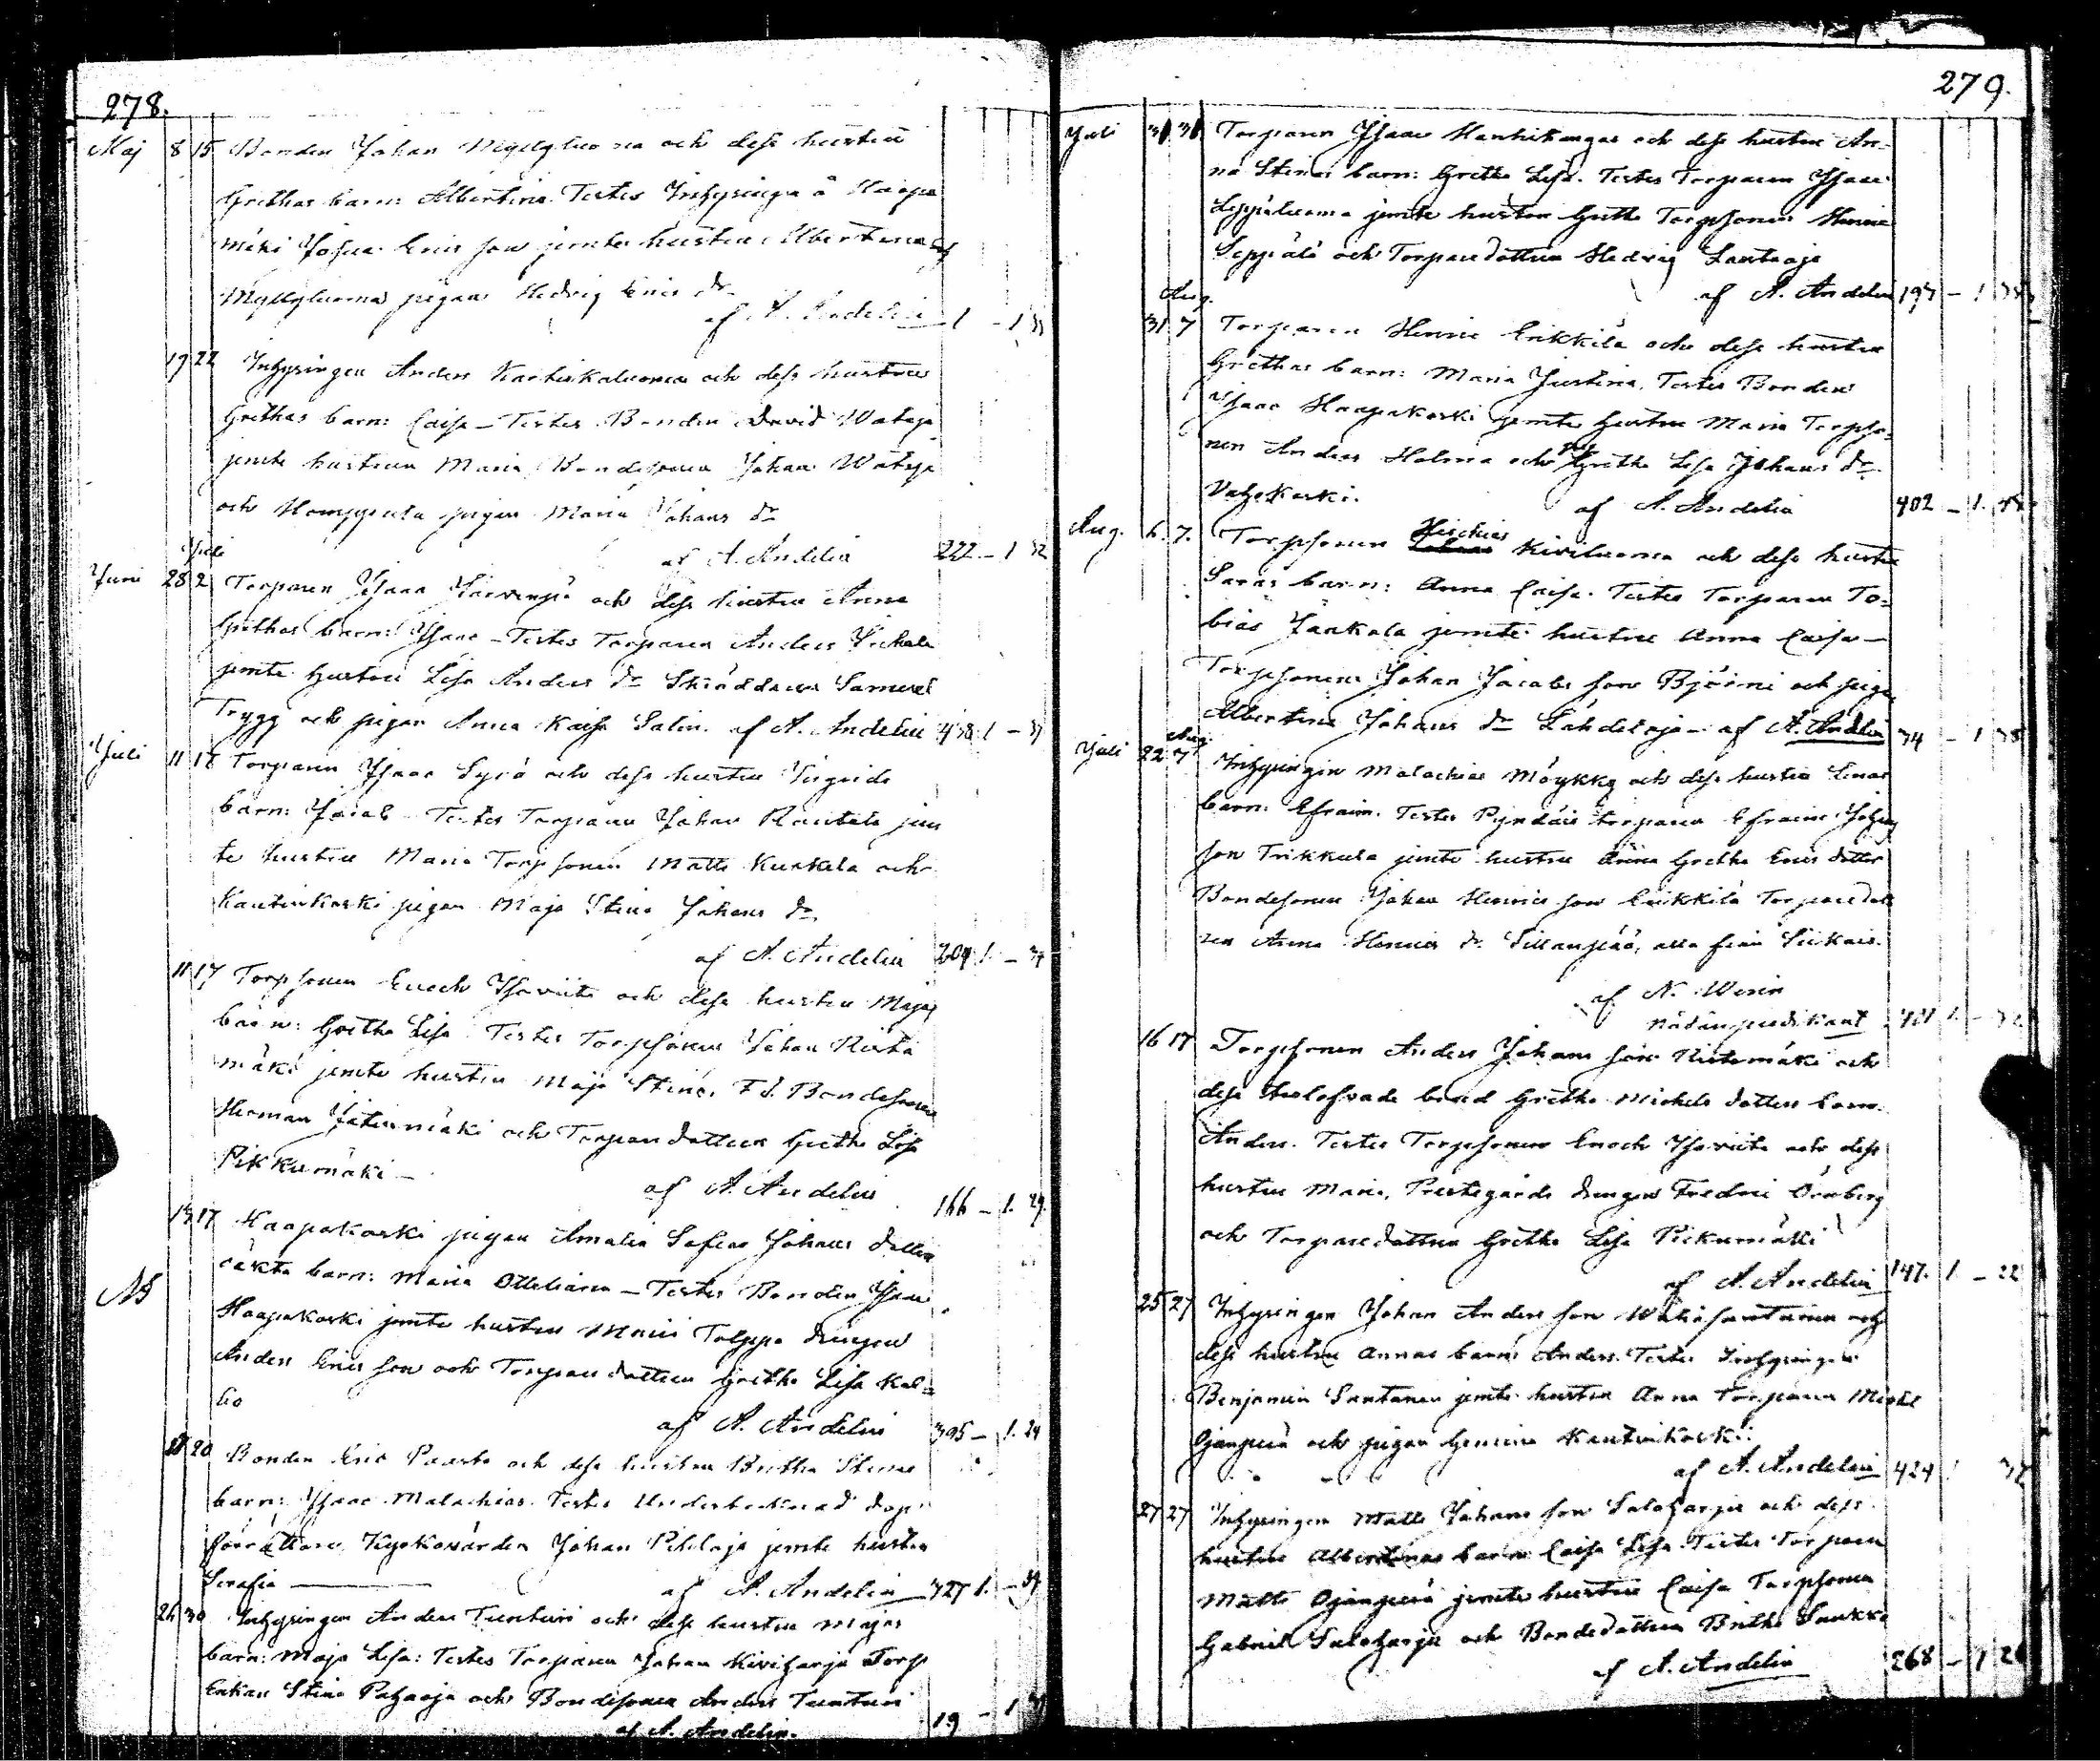 278.
Maj 8 15 Bonden Johan Myllyluoma och dess hustru
Grethas barn: Albertina. Testes Inhysingen å Haapa
mäki Josua Erics son jemte hustru Albertina och
Myllyluoma pigan Hedvig Erics dr
af A. Andelin 1 - 1
19 22 Inhysingen Anders Karhukaluoma och dess hustrus
Grethas barn: Caisa - Testes Bonden David Wataja
jemte hustrun Maria Bondesonen Johan Wataja
och Homppula pigan Maria Johans dr
af A. Andelin 222 - 1 32
Juli
Juni 28 2 Torparen Isaac Järvenpä och dess hustru Anna
Grethas barn: Isaac - Testes Torparen Anders
jemte hustru Lisa Anders dr Skräddaren Samuel
Trygg och pigan Anna Kaisa Salin. af A. Andelin 438 1 -
Juli 11 17 Torparen Isaac Syrö och dess hustru
barn: Jacob - Testes Torparen Johan Rautela jem
te hustru Maria Torpsonen Matts Kurkela och
Kantinkoski pigan Maja Stina Johans dr
af A. Andelin 209 1 -
11 17 Torpsonen Enoch Isoviita och dess hustru Majas
barn: Gretha Lisa Testes Torpsonen Johan Rista
mäki jemte hustru Maja Stina, F.d. Bondesonen
Herman och Torparedottren Gretha Lisa
Pikkumäki -
af A. Andelin 166 - 1. 29.
13 17 Haapakoski pigan Amalia Sofias Johans dotters
NB oäkta barn: Maria Otteliana - Testes Bonden Isaac
Haapakoski jemte hustru Maria Tolppa drengen
Anders Erics son och Torpare dottren Gretha Lisa Kal=
lio
af A. Andelin 395 - 1. 24
20 Bonden Eric Paasto och dess hustru Britha Stinas
barn: Isaac Malachias. Testes Undertecknad dop
förrättare Kyrkovärden Johan Pihlaja jemte hustru
Serafia - af A. Andelin 327 1. -
26 30 Inhysingen Anders Tunturi och dess hustru Majas
barn: Maja Lisa: Testes Torparen Johan Kiviharju Torp
Enkan Stina Pahaoja och Bondesonen Anders Tunturi
af A. Andelin. 19 - 1
279.
Juli 31 31 Torparen Isaac Hanhikangas och dess hustru An-
na Stinas barn: Gretha Lisa. Testes Torparen Isaac
Leppäluoma jemte hustru Gretha Torpsonen Henric
Seppälä och Torparedottren Hedvig Lautaoja
af A. Andelin 197 - 1
Aug.
31 7 Torparen Henric Erikkilä och dess hustru
Grethas barn: Maria Justina. Testes Bonden
Isaac Haapakoski jemte hustru Maria Torpso-
nen Anders Holma och Gretha Lisa Johans dr
Vatjekoski.
af A. Andelin 402 - 1.
Aug. 6. 7. Torpsonen Heschias Kiviluoma och dess hustru
Saras barn: Anna Caisa. Testes Torparen To=
bias Jaakola jemte hustru Anna Caisa -
Torpsonen Johan Jacobs son Björni och pigan
Albertina Johans dr Lähdetoja - af A. Andelin 74 - 1 38
Aug.
Juli 22 7 Inhysingen Malachias Möykky och dess hustru Enas
barn: Efraim. Testes torparen Efraim Johans
son Trikkula jemte hustru Anna Gretha Erics dotter
Bondesonen Johan Henrics son Erikkilä Torparedott
ren Anna Henrics dr Sillanpää, alla från Siikais.
af N. Weslin
nådårspredikant 421 1 - 32
16 17 Torpsonen Anders Johans son Ristamäki och
dess trolofvade brud Gretha Michels dotters barn.
Anders. Testes Torpsonen Enoch Isoviita och dess
hustru Maria, Prestegårds drengen Fredric Örnberg
och Torparedottren Gretha Lisa Pickumäki
af A. Andelin 147. 1 - 22
25 27 Inhysingen Johan Anders son Wähäsantanen och
dess hustru Annas barn: Anders. Testes Inhysingen
Benjamin Santanen jemte hustru Anna Torparen Michel
Ojanperä och pigan Gemima Kantinkoski.
af A. Andelin 424 1 32
27 27 Inhysingen Matts Johans son Saloharju och dess
hustru Albertinas barn: Caisa Lisa. Testes Torparen
Matts Ojanperä jemte hustru Caisa Torpsonen
Gabriel Saloharju och Bondedottren Britha Saukko
af A. Andelin 268 - 1 26